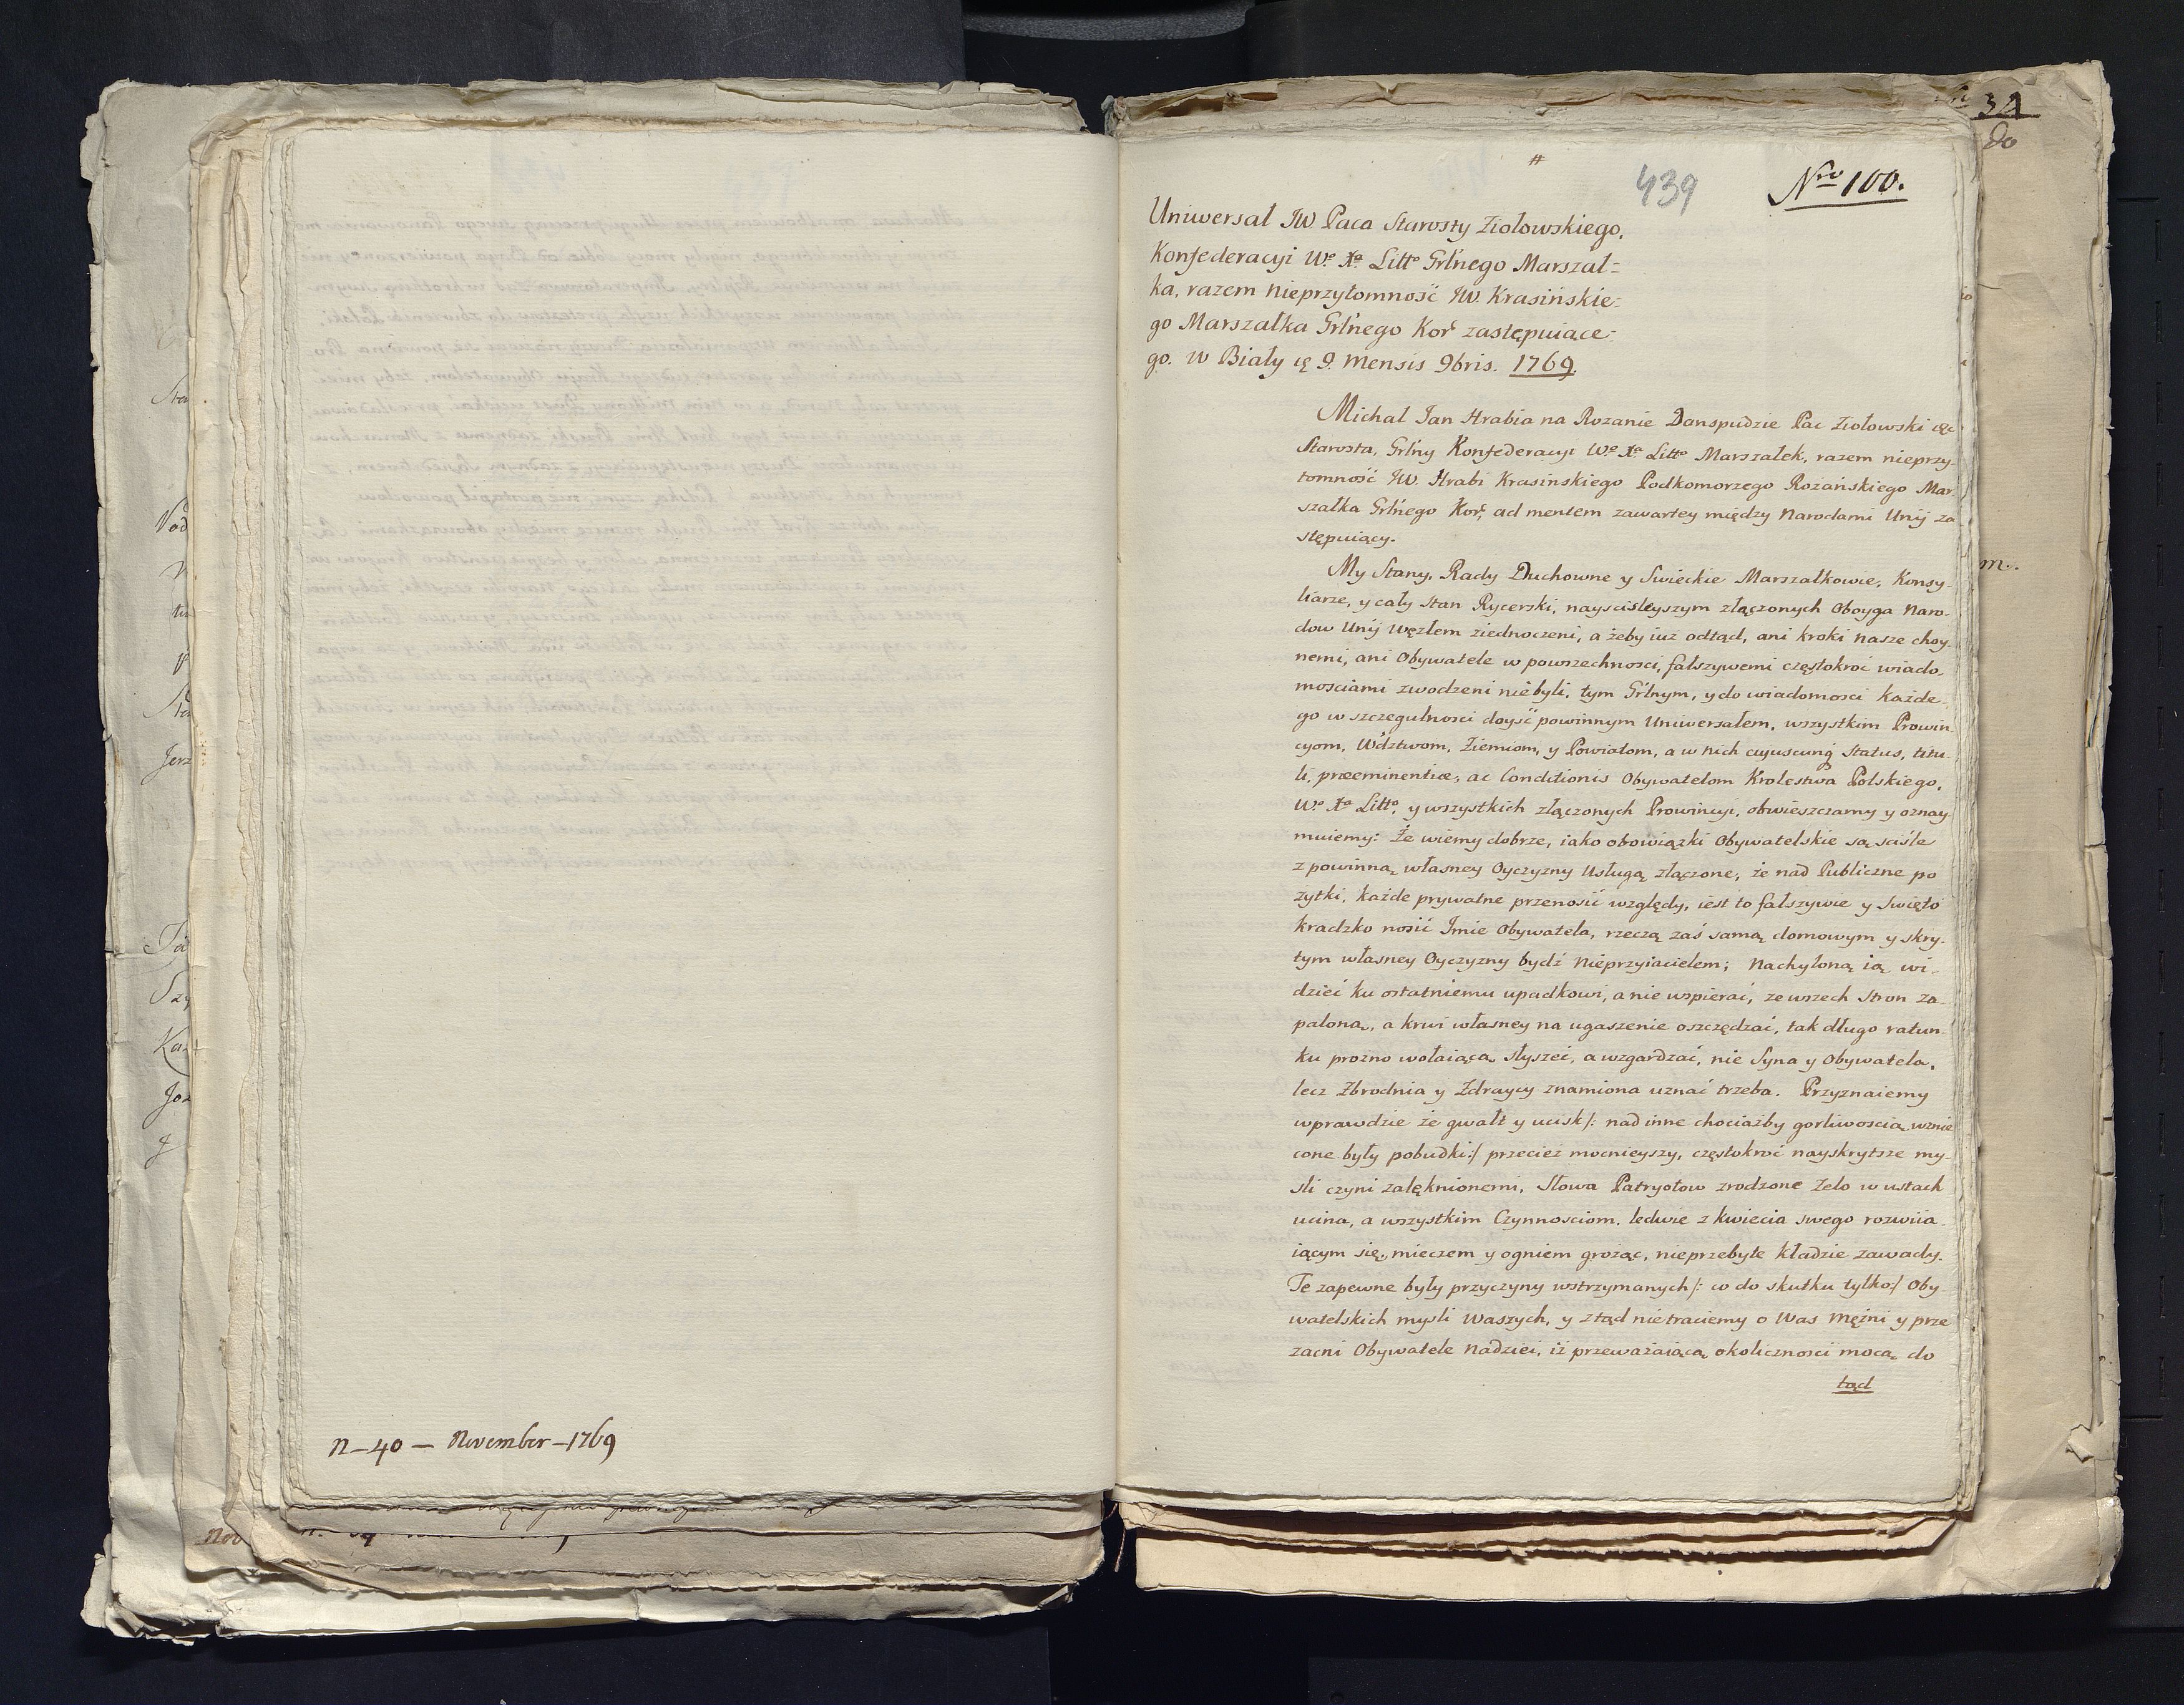 n–40 — November–1769
#
439
Nro 100.
Uniwersał JW. Paca Starosty Ziołowskiego,
Konfederacyi We. Xa. Litto Grlnego Marszał=
ka, razem nieprzytomność JW. Krasińskie=
go Marszałka Grlnego Kor zastępuiące=
go. w Biały 9. Mensis 9bris. 1769.
Michał Jan Hrabia na Rozanie Danspudzie Pac Ziołowski
Starosta, Grlny Konfederacyi We. Xa. Litto Marszałek, razem nieprzy-
tomność JW. Hrabi Krasinskiego Podkomorzego Rożańskiego Mar-
szałka Grlnego Kor, ad mentem zawartey między Narodami Unij za
stępuiący.
My Stany, Rady Duchowne y Swieckie Marszałkowie, Konsy-
liarze, y cały Stan Rycerski, nayscisleyszym złączonych Oboyga Naro-
dow Unij węzłem ziednoczeni, a żeby iuż odtąd, ani kroki nasze choy-
nemi, ani Obywatele w powszechnosci, fałszywemi częstokroć wiado-
mosciami zwodzeni niebyli, tym Grlnym, y do wiadomosci każde-
go w szczegulnosci doyść powinnym Uniwersałem, wszystkim Prowin
cyom, Wdztwom, Ziemiom, y Powiatom, a w nich cujuscunq Status, titu-
li, præeminentiæ, ac Conditionis Obywatelom Krolestwa Polskiego,
We Xa Litto, y wszystkich złączonych Prowincyi, obwieszczamy y oznay
muiemy: Że wiemy dobrze, iako obowiązki Obywatelskie są sciśle
z powinną własney Oyczyzny Usługą złączone, że nad Publiczne po
żytki, każde prywatne przenosić względy, iest to fałszywie y Swięto
kradzko nosić Imie Obywatela, rzeczą zaś samą domowym y skry-
tym własney Oyczyzny bydź Nieprzyiacielem; Nachyloną ią wi-
dzieć ku ostatniemu upadkowi, a nie wspierać, ze wszech Stron za-
paloną, a krwi własney na ugaszenie oszczędzać, tak długo ratun-
ku prożno wołaiącą słyszeć, a wzgardzać, nie Syna y Obywatela,
lecz Zbrodnia y Zdraycy znamiona uznać trzeba. Przyznaiemy
wprawdzie że gwałt y ucisk /: nad inne chociażby gorliwoscią wznie
cone były pobudki :/ przecież mocnieyszy, częstokroć nayskrytsze my-
sli czyni zalęknionemi, Słowa Patryotow zrodzone Zelo w ustach
ucina, a wszystkim Czynnosciom, ledwie z kwiecia swego rozwiia-
iącym się, mieczem y ogniem grożąc, nieprzebyte kładzie zawady.
Te zapewne były przyczyny wstrzymanych /: co do skutku tylko :/ Oby-
watelskich mysli Waszych, y ztąd nietraciemy o Was Mężni y prze
zacni Obywatele Nadziei, iż przeważaiącą okolicznosci mocą do
tąd